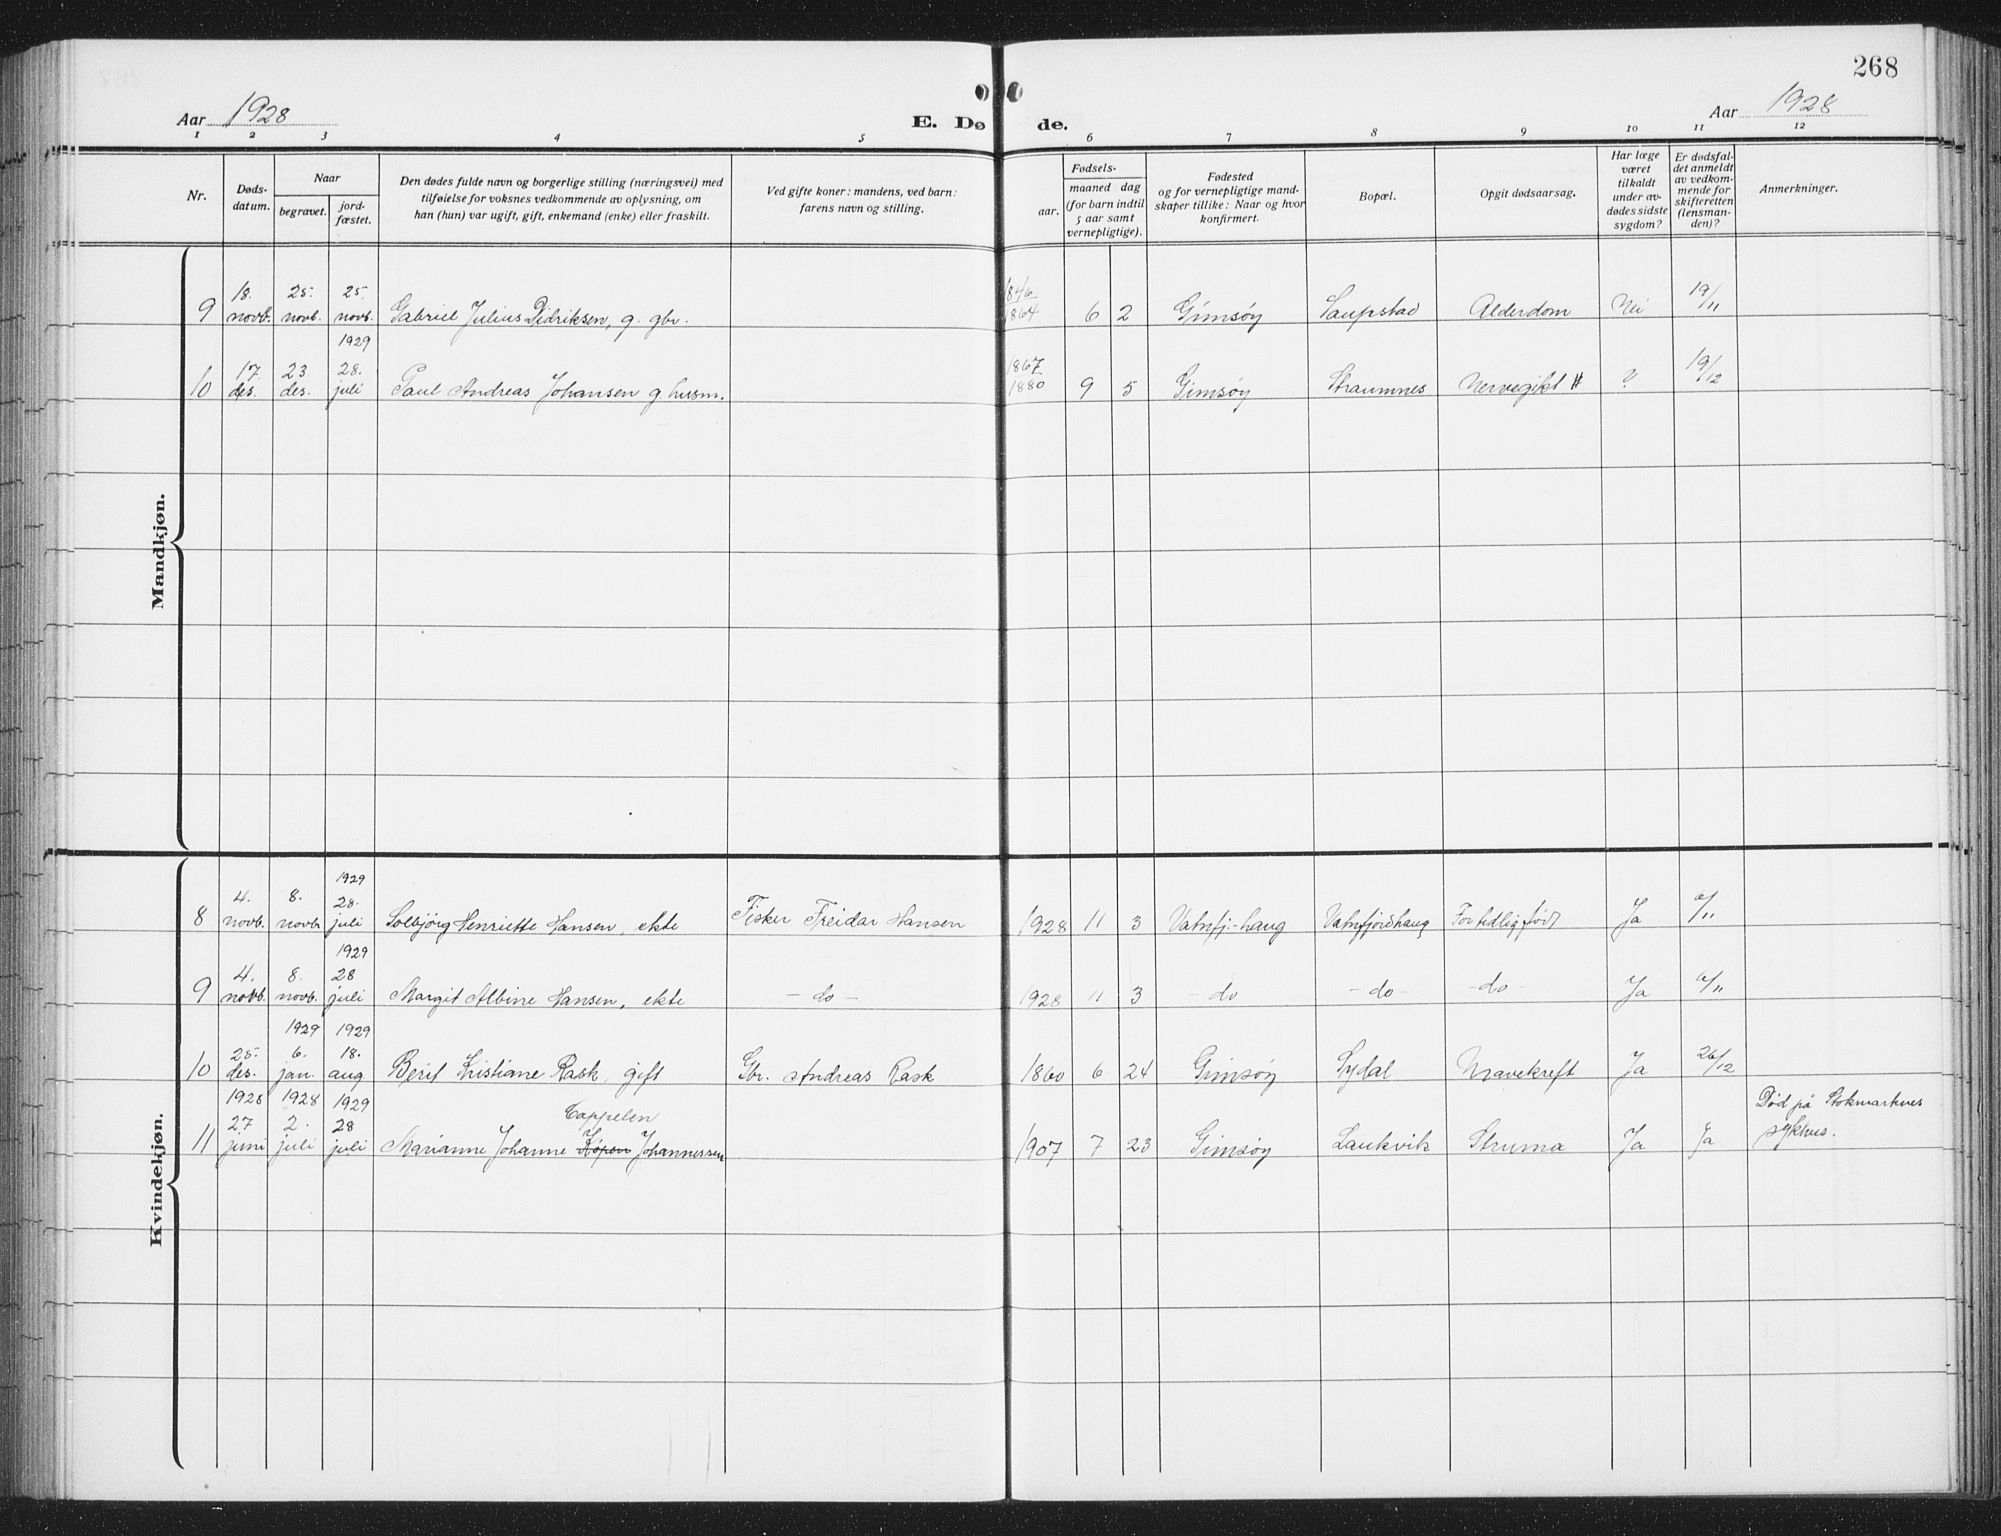 268
Aar 1928
E. Dø de.
Aar 1928
1 2 3 4 5 6 7 8 9 10 11 12
Nr.
Døds-
datum.
Naar
begravet.
jord-
fæstet.
Den dødes fulde navn og borgerlige stilling (næringsvei) med
tilføielse for voksnes vedkommende av oplysning, om
han (hun) var ugift, gift, enkemand (enke) eller fraskilt.
Ved gifte koner: mandens, ved barn:
farens navn og stilling.
Fødsels-
aar.
maaned dag
(for barn indtil
5 aar samt
vernepligtige).
Fødested
og for vernepligtige mand-
skaper tillike: Naar og hvor
konfirmert.
Bopæl.
Opgit dødsaarsag.
Har læge
været
tilkaldt
under av-
dødes sidste
sygdom?
Er dødsfal-
det anmeldt
av vedkom-
mende for
skifteretten
(lensman-
den)?
Anmerkninger.
Mandkjøn.
18. 25. 25. 1846 19/11
9 novb. novb. novb. Gabriel Julius Didriksen, g. gbr. 1864 6 2 Gimsøy Saupstad Alderdom Nei
1929
17. 23. 28. 1867 19/12
10 des. des. juli Paul Andreas Johansen g. husm. 1880 9 5 Gimsøy Straumnes Nervegikt ?
Kvindekjøn.
1929
4. 8. 28.
8 novb. novb. juli Solbjørg Henriette Hansen, ekte Fisker Freidar Hansen 1928 11 3 Vatnfj.-haug Vatnfjordhaug For tidlig fød Ja 6/11
1929
4. 8. 28
9 novb. novb. juli Margit Albine Hansen, ekte - do - 1928 11 3 - do - do - - do - Ja 6/11
1929 1929
25. 6. 18.
10 des. jan. aug Berit Kristiane Rask, gift Gbr. Andreas Rask 1860 6 24 Gimsøy Sydal Mavekreft Ja 26/12
1928 1928 1929 Cappelen Død på Stokmarknes
27 2. 28 sykhus.
11 juni juli juli Marianne Johanne Johannessen 1907 7 23 Gimsøy Laukvik Struma Ja Ja